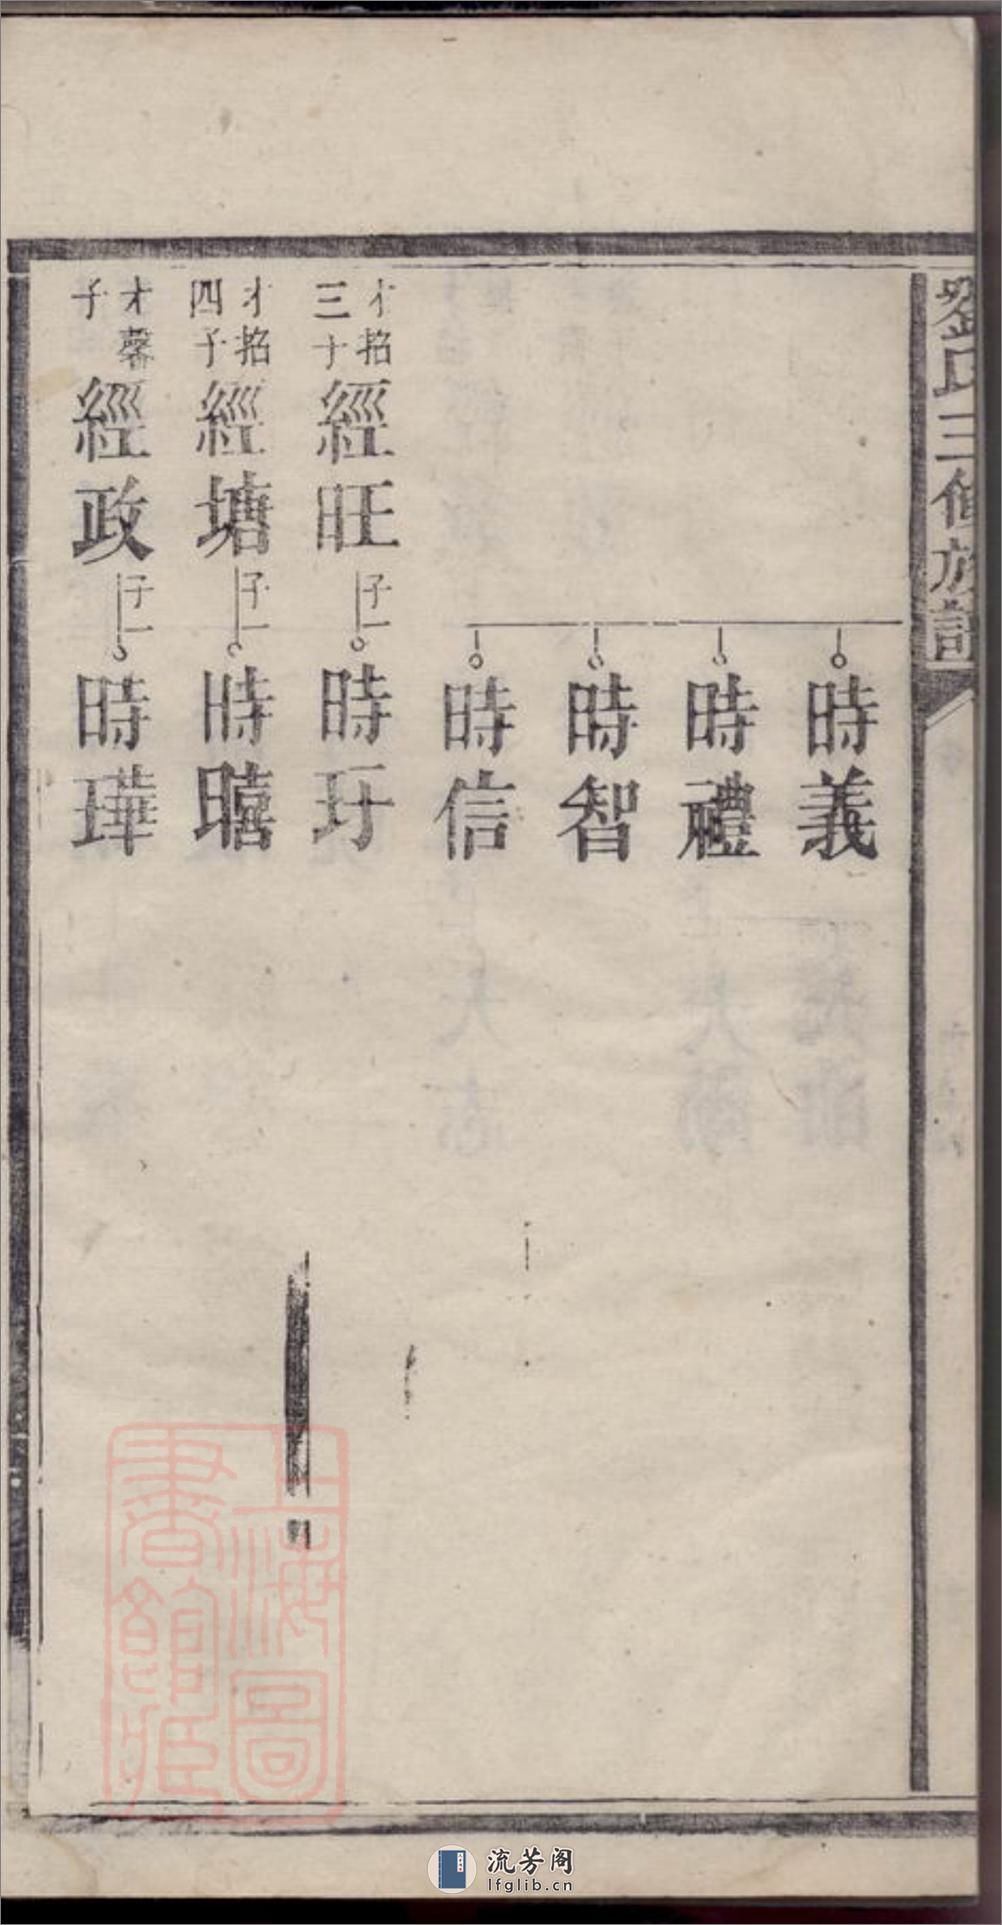 劉氏三修族譜
時義
時禮
時智
時信
才招三子
經旺
子一
時玗
才招四子
經塘
子一
時暿
才馨子
經政
子一
時瑋
上海圖書館藏
流芳阁
lfglib.cn